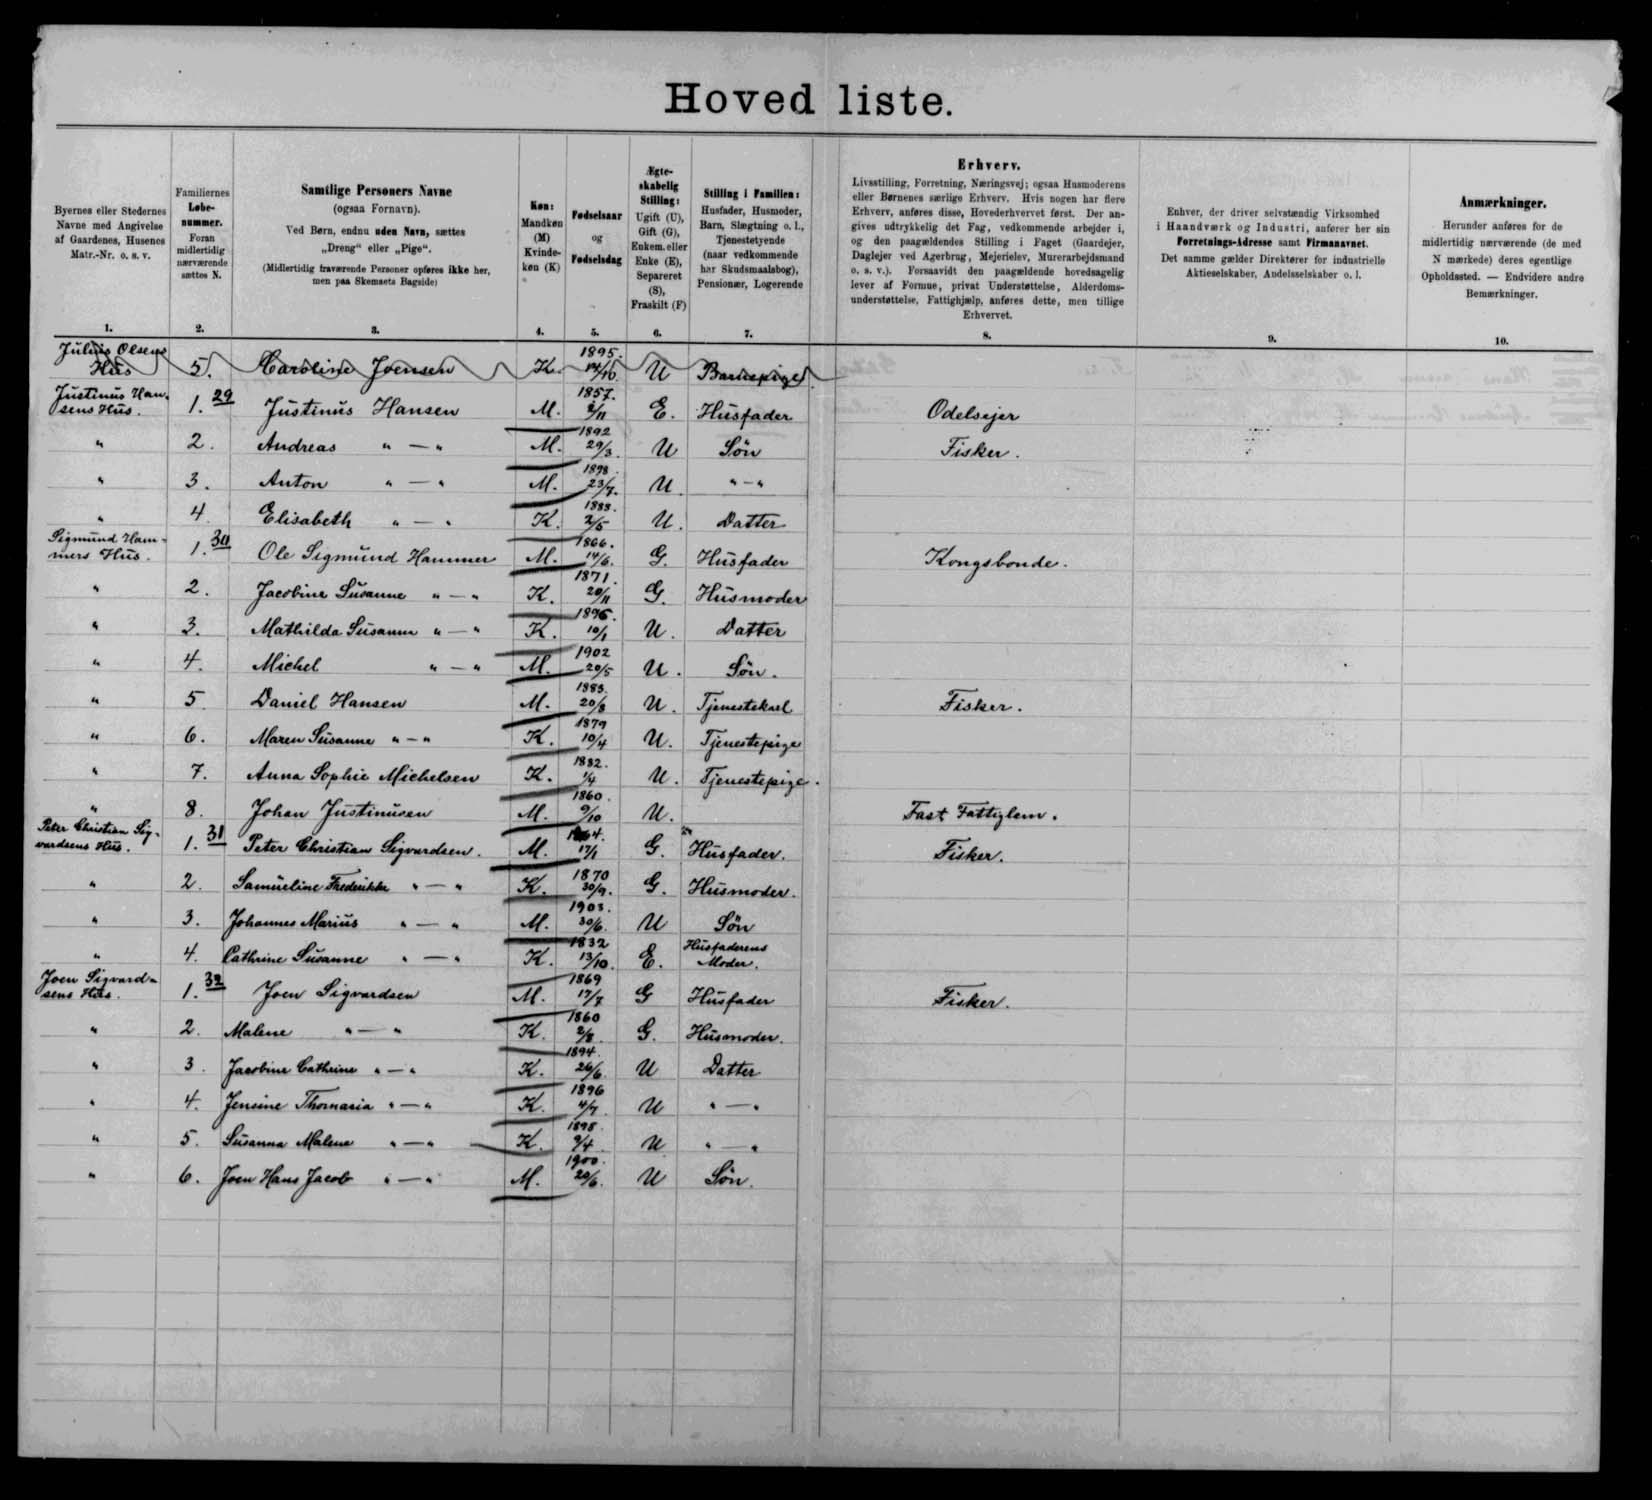 Hoved liste.
Byernes eller Stedernes
Navne med Angivelse
af Gaardenes, Husenes
Matr.-Nr. o. s. v.
1.
Familiernes
Løbe-
nummer.
Foran
midlertidig
nærværende
sættes N.
2.
Samtlige Personers Navne
(ogsaa Fornavn).
Ved Børn, endnu uden Navn, sættes
„Dreng“ eller „Pige“.
(Midlertidig fraværende Personer opføres ikke her,
men paa Skemaets Bagside)
3.
Køn:
Mandkøn
(M)
Kvinde-
køn (K)
4.
Fødselsaar
og
Fødselsdag
5.
Ægte-
skabelig
Stilling:
Ugift (U),
Gift (G),
Enkem. eller
Enke (E),
Separeret
(S),
Fraskilt (F)
6.
Stilling i Familien:
Husfader, Husmoder,
Barn, Slægtning o. l.,
Tjenestetyende
(naar vedkommende
har Skudsmaalsbog),
Pensionær, Logerende
7.
Erhverv.
Livsstilling, Forretning, Næringsvej; ogsaa Husmoderens
eller Børnenes særlige Erhverv. Hvis nogen har flere
Erhverv, anføres disse, Hovederhvervet først. Der an-
gives udtrykkelig det Fag, vedkommende arbejder i,
og den paagældendes Stilling i Faget (Gaardejer,
Daglejer ved Agerbrug, Mejerielev, Murerarbejdsmand
o. s. v.). Forsaavidt den paagældende hovedsagelig
lever af Formue, privat Understøttelse, Alderdoms-
understøttelse, Fattighjælp, anføres dette, men tillige
Erhvervet.
8.
Enhver, der driver selvstændig Virksomhed
i Haandværk og Industri, anfører her sin
Forretnings-Adresse samt Firmanavnet.
Det samme gælder Direktører for industrielle
Aktieselskaber, Andelsselskaber o. l.
9.
Anmærkninger.
Herunder anføres for de
midlertidig nærværende (de med
N mærkede) deres egentlige
Opholdssted. — Endvidere andre
Bemærkninger.
10.
Julius Olsens Hus 5. Caroline Joensen K. 1895. 14/10. U Barnepige.
Justinus Han-
sens Hus. 1. 29 Justinus Hansen M. 1857. 2/11 E. Husfader Odelsejer
" 2. Andreas " — " M. 1892 29/3. U Søn Fisker.
" 3. Anton " — " M. 1898. 23/7. U. " — "
" 4 Elisabeth " — " K. 1888. 2/5 U. Datter
Sigmund Ham-
mers Hus. 1. 30 Ole Sigmund Hammer M. 1866. 14/6. G. Husfader Kongsbonde.
" 2. Jacobine Susanne " — " K. 1871. 20/11 G. Husmoder
" 3. Mathilda Susanne " — " K. 1896. 10/1 U. Datter
" 4. Michel " — " M. 1902 20/5 U. Søn.
" 5 Daniel Hansen M. 1883. 20/8 U. Tjenestekarl Fisker.
" 6. Maren Susanne " — " K. 1879 10/4 U. Tjenestepige
" 7. Anna Sophie Michelsen K. 1882. 1/4 U. Tjenestepige.
" 8. Johan Justinusen M. 1860. 9/10 U. Fast Fattiglem.
Peter Christian Sig-
vardsens Hus. 1. 31 Peter Christian Sigvardsen. M. 1864. 17/1 G. Husfader. Fisker.
" 2. Samueline Frederikke " — " K. 1870 30/9. G. Husmoder.
" 3. Johannes Marius " — " M. 1903. 30/6. U Søn
" 4. Cathrine Susanne " — " K. 1832 13/10. E. Husfaderens Moder.
Joen Sigvard-
sens Hus. 1. 32 Joen Sigvardsen M. 1869 17/7 G Husfader Fisker.
" 2. Malene " — " K. 1860 2/8. G. Husmoder.
" 3. Jacobine Cathrine " — " K. 1894. 26/6. U Datter
" 4. Jensine Thomaria " — " K. 1896 4/7. U " — "
" 5. Susanna Malene " — " K. 1898. 9/4. U " — "
" 6. Joen Hans Jacob " — " M. 1900. 20/6. U Søn.